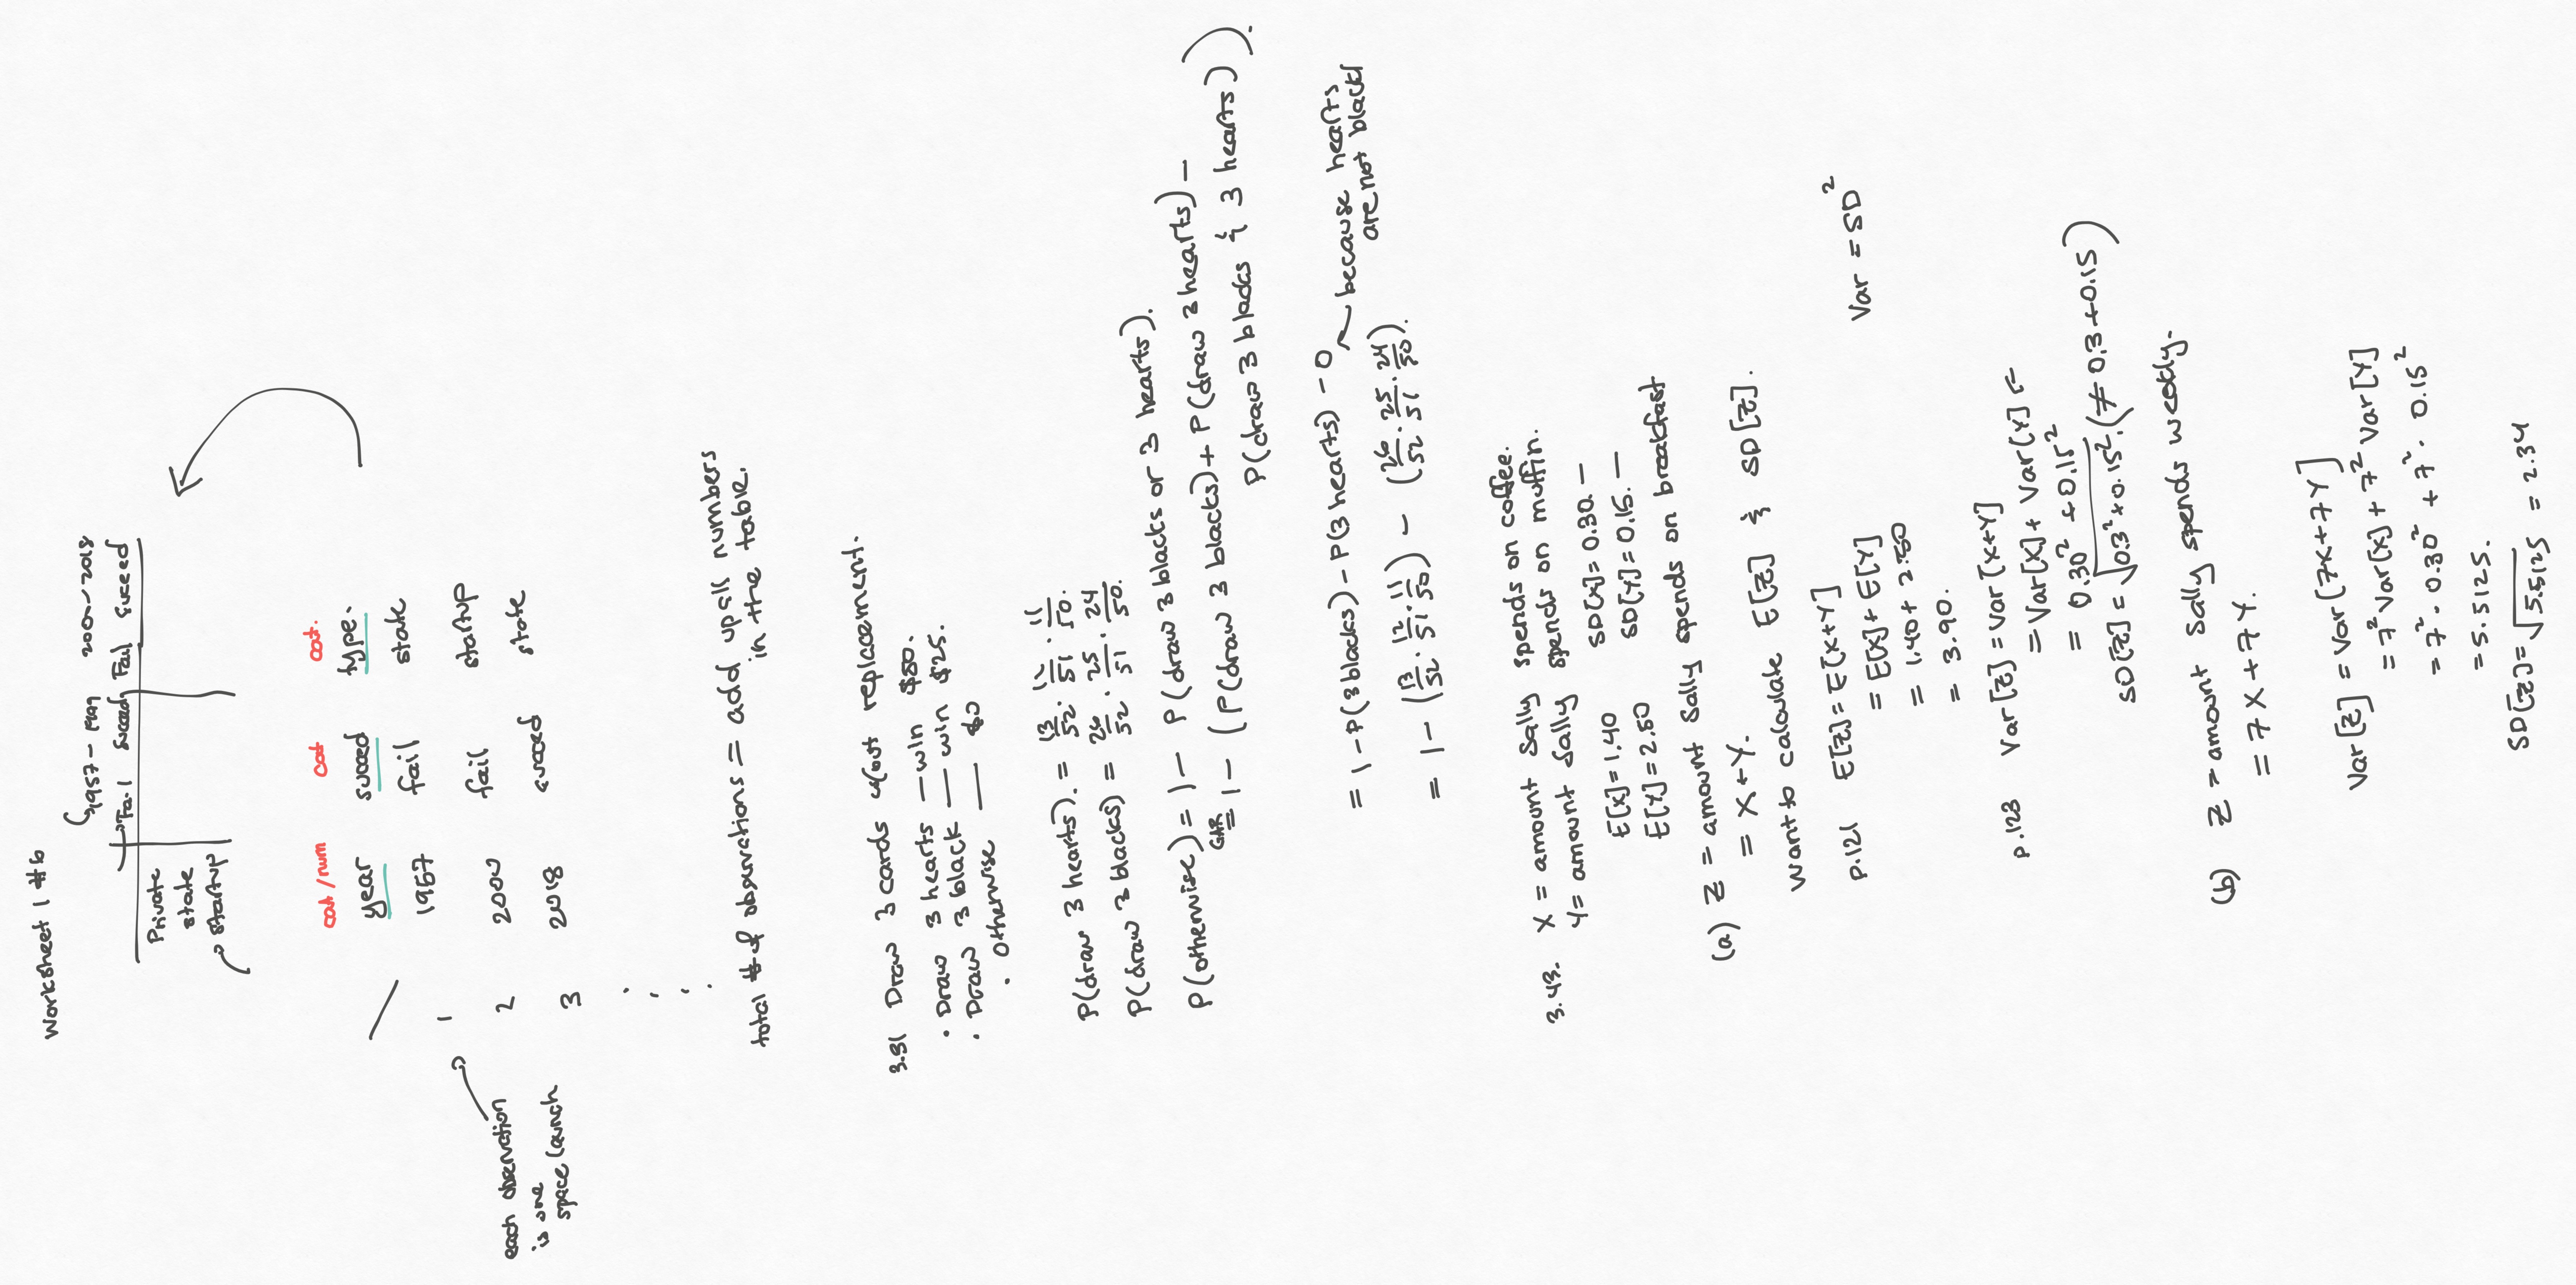 Worksheet 1 #6
1957 - 1999 2000 - 2018
Fail Succeed Fail Succeed
Private
state
startup
cat/num cat cat.
year succeed type.
1 1957 fail state
2 2000 fail startup
3 2018 succeed state
each observation
is one
space launch
total # of observations = add up all numbers
in the table.
3.31 Draw 3 cards w/out replacement.
· Draw 3 hearts — win $50.
· Draw 3 black — win $25.
· otherwise — $0
P(draw 3 hearts). = 13/52 · 12/51 · 11/50.
P(draw 3 blacks) = 26/52 · 25/51 · 24/50.
P(otherwise) = 1 - P(draw 3 blacks or 3 hearts).
GAR = 1 - (P(draw 3 blacks) + P(draw 3 hearts) -
P(draw 3 blacks & 3 hearts)).
= 1 - P(3 blacks) - P(3 hearts) - 0
because hearts
are not black!
= 1 - (13/52 · 12/51 · 11/50) - (26/52 · 25/51 · 24/50).
3.43. X = amount Sally spends on coffee.
Y = amount Sally spends on muffin.
E[X] = 1.40 SD[X] = 0.30. —
E[Y] = 2.50 SD[Y] = 0.15. —
(a) Z = amount Sally spends on breakfast
= X+Y.
Want to calculate E[Z] & SD[Z].
p.121 E[Z] = E[X+Y]
= E[X] + E[Y]
= 1.40 + 2.50
= 3.90.
Var = SD²
p.123 Var[Z] = Var[X+Y]
= Var[X] + Var[Y] ←
= 0.30² + 0.15²
SD[Z] = √0.3² + 0.15². (≠ 0.3 + 0.15)
(b) Z = amount Sally spends weekly.
= 7X + 7Y.
Var[Z] = Var[7X + 7Y]
= 7² Var[X] + 7² Var[Y]
= 7² · 0.30² + 7² · 0.15²
= 5.5125.
SD[Z] = √5.5125 = 2.34